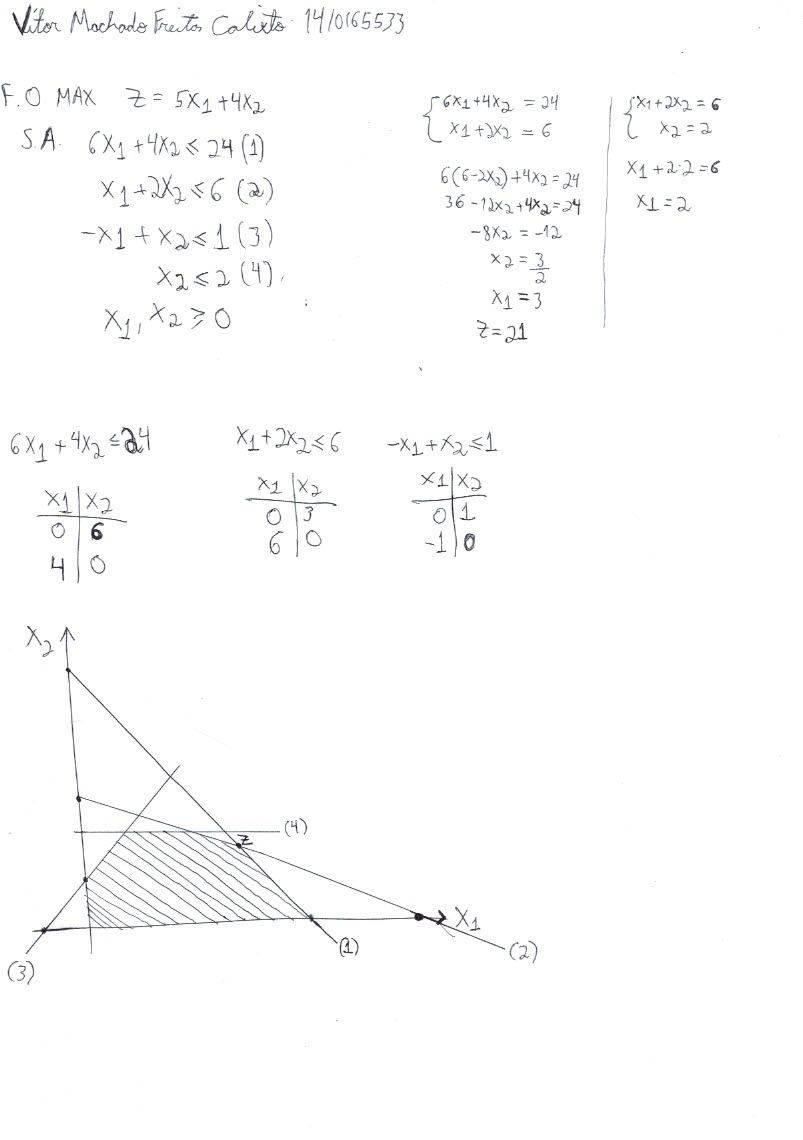 Vitor Machado Freitas Calixto 14/0165533
F.O MAX Z = 5X1+4X2
S.A. 6X1+4X2 ≤ 24 (1)
X1+2X2 ≤ 6 (2)
-X1 + X2 ≤ 1 (3)
X2 ≤ 2 (4)
X1, X2 ≥ 0
{6X1+4X2 = 24
X1+2X2 = 6
6(6-2X2)+4X2=24
36-12X2+4X2=24
-8X2 = -12
X2 = 3/2
X1 = 3
Z=21
{X1+2X2=6
X2=2
X1+2·2=6
X1=2
6X1+4X2 ≤ 24
X1 X2
0 6
4 0
X1+2X2 ≤ 6
X1 X2
0 3
6 0
-X1+X2 ≤ 1
X1 X2
0 1
-1 0
X2
(4)
Z
X1
(1)
(2)
(3)